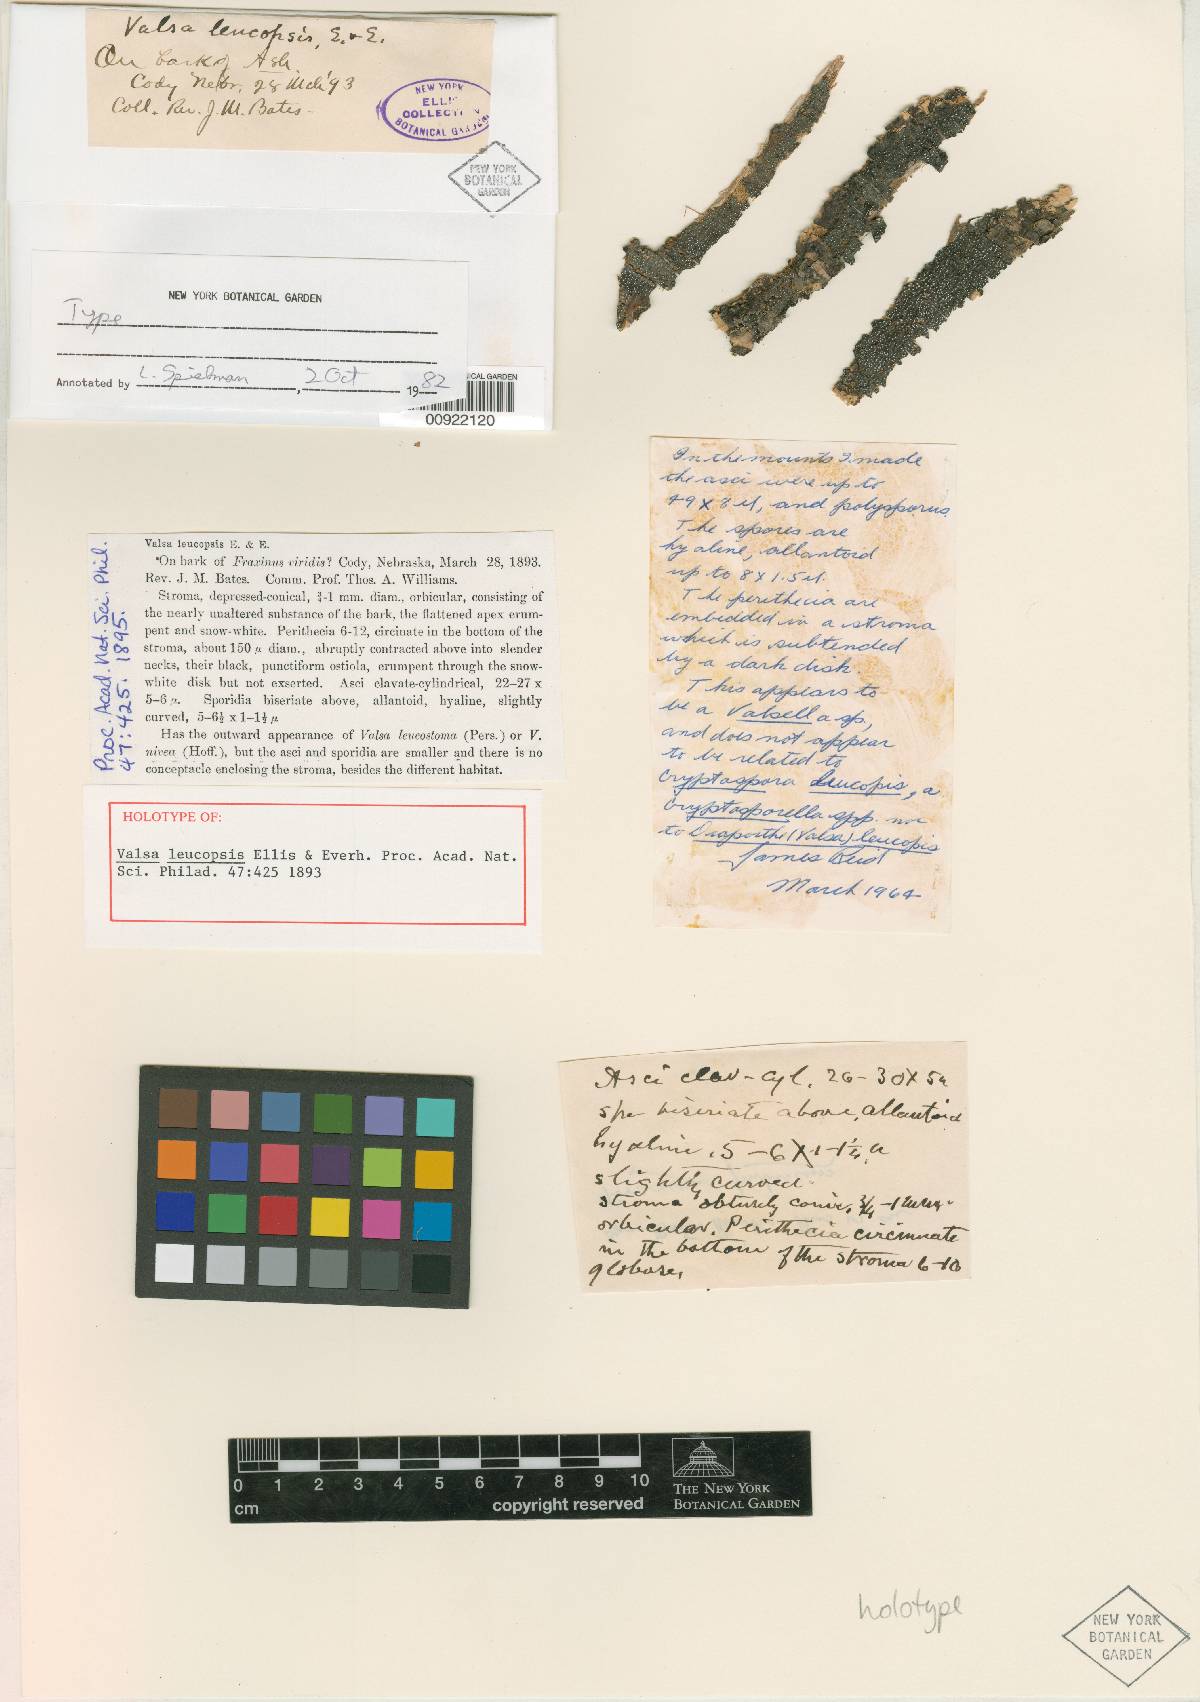 Valsa leucopsis, E. & E.
On bark of Ash
Cody Nebr, 28 Mch '93
Coll. Rev. J. M. Bates-
NEW YORK
ELLIS
COLLECTION
BOTANICAL GARDEN
NEW YORK
BOTANICAL
GARDEN
NEW YORK BOTANICAL GARDEN
Type
Annotated by L. Spielman, 2 Oct 1982
ICAL GARDEN
00922120
Proc. Acad. Nat. Sci. Phil.
47:425. 1895.
Valsa leucopsis E. & E.
On bark of Fraxinus viridis? Cody, Nebraska, March 28, 1893.
Rev. J. M. Bates. Comm. Prof. Thos. A. Williams.
Stroma, depressed-conical, ¾-1 mm. diam., orbicular, consisting of
the nearly unaltered substance of the bark, the flattened apex erum-
pent and snow-white. Perithecia 6-12, circinate in the bottom of the
stroma, about 150 µ diam., abruptly contracted above into slender
necks, their black, punctiform ostiola, erumpent through the snow-
white disk but not exserted. Asci clavate-cylindrical, 22–27 x
5–6 µ. Sporidia biseriate above, allantoid, hyaline, slightly
curved, 5–6½ x 1–1½ µ
Has the outward appearance of Valsa leucostoma (Pers.) or V.
nivea (Hoff.), but the asci and sporidia are smaller and there is no
conceptacle enclosing the stroma, besides the different habitat.
HOLOTYPE OF:
Valsa leucopsis Ellis & Everh. Proc. Acad. Nat.
Sci. Philad. 47:425 1893
In the mounts I made
the asci were up to
49 x 8 µ, and polysporus.
The spores are
hyaline, allantoid
up to 8 x 1.5 µ.
The perithecia are
embedded in a stroma
which is subtended
by a dark disk.
This appears to
be a Valsella sp.,
and does not appear
to be related to
Cryptospora leucopis, a
Cryptosporella spp. nor
to Diaporthe (Valsa) leucopis
James Reid
March 1964
Asci clav-cyl. 26-30 x 5µ
spr biseriate above, allantoid
hyaline, 5-6 x 1-1¼ µ
slightly curved.
stroma obtusely conic, ¾-1 mm.
orbicular. Perithecia circinate
in the bottom of the stroma 6-10
globose.
0 1 2 3 4 5 6 7 8 9 10
cm
copyright reserved
THE NEW YORK
BOTANICAL GARDEN
holotype
NEW YORK
BOTANICAL
GARDEN